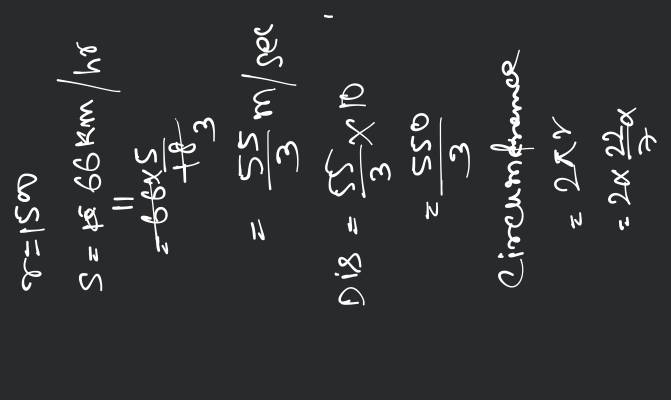 r=1500
S = 66 km/hr
11
= 66×5/18 3
= 55/3 m/sec
Dis = 55/3 × 10
= 550/3
Circumference
= 2πr
= 2× 22/7 ×